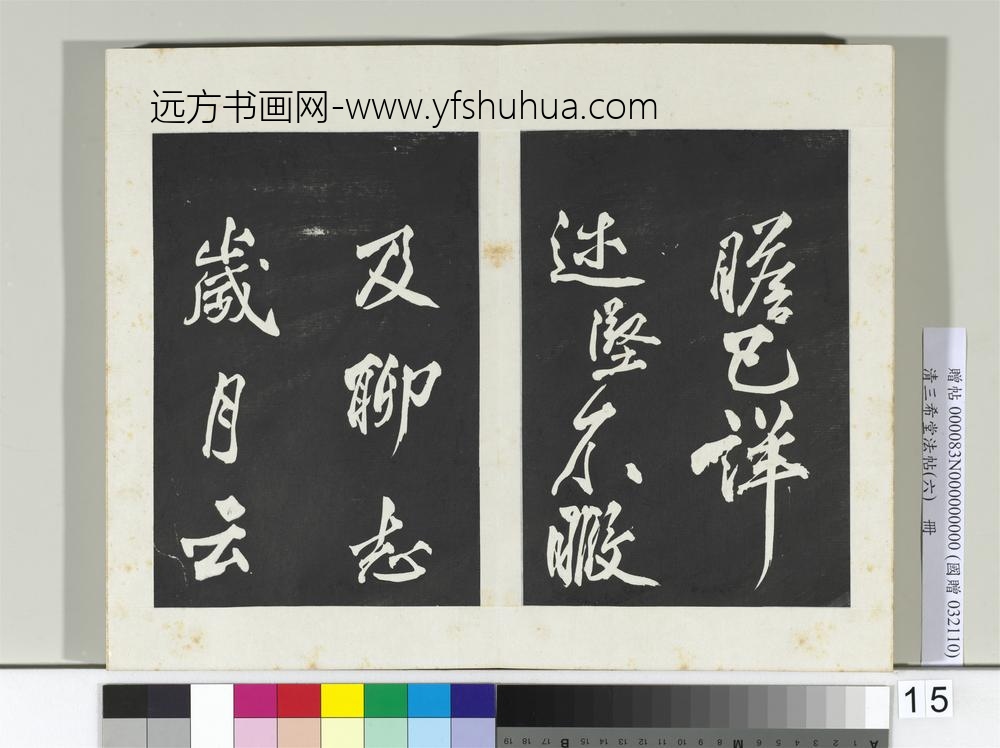 远方书画网-www.yfshuhua.com
瞻已詳
述堅不暇
及聊志
歲月云
贈帖 000083N000000000 (國贈 032110)
清三希堂法帖(六) 冊
15